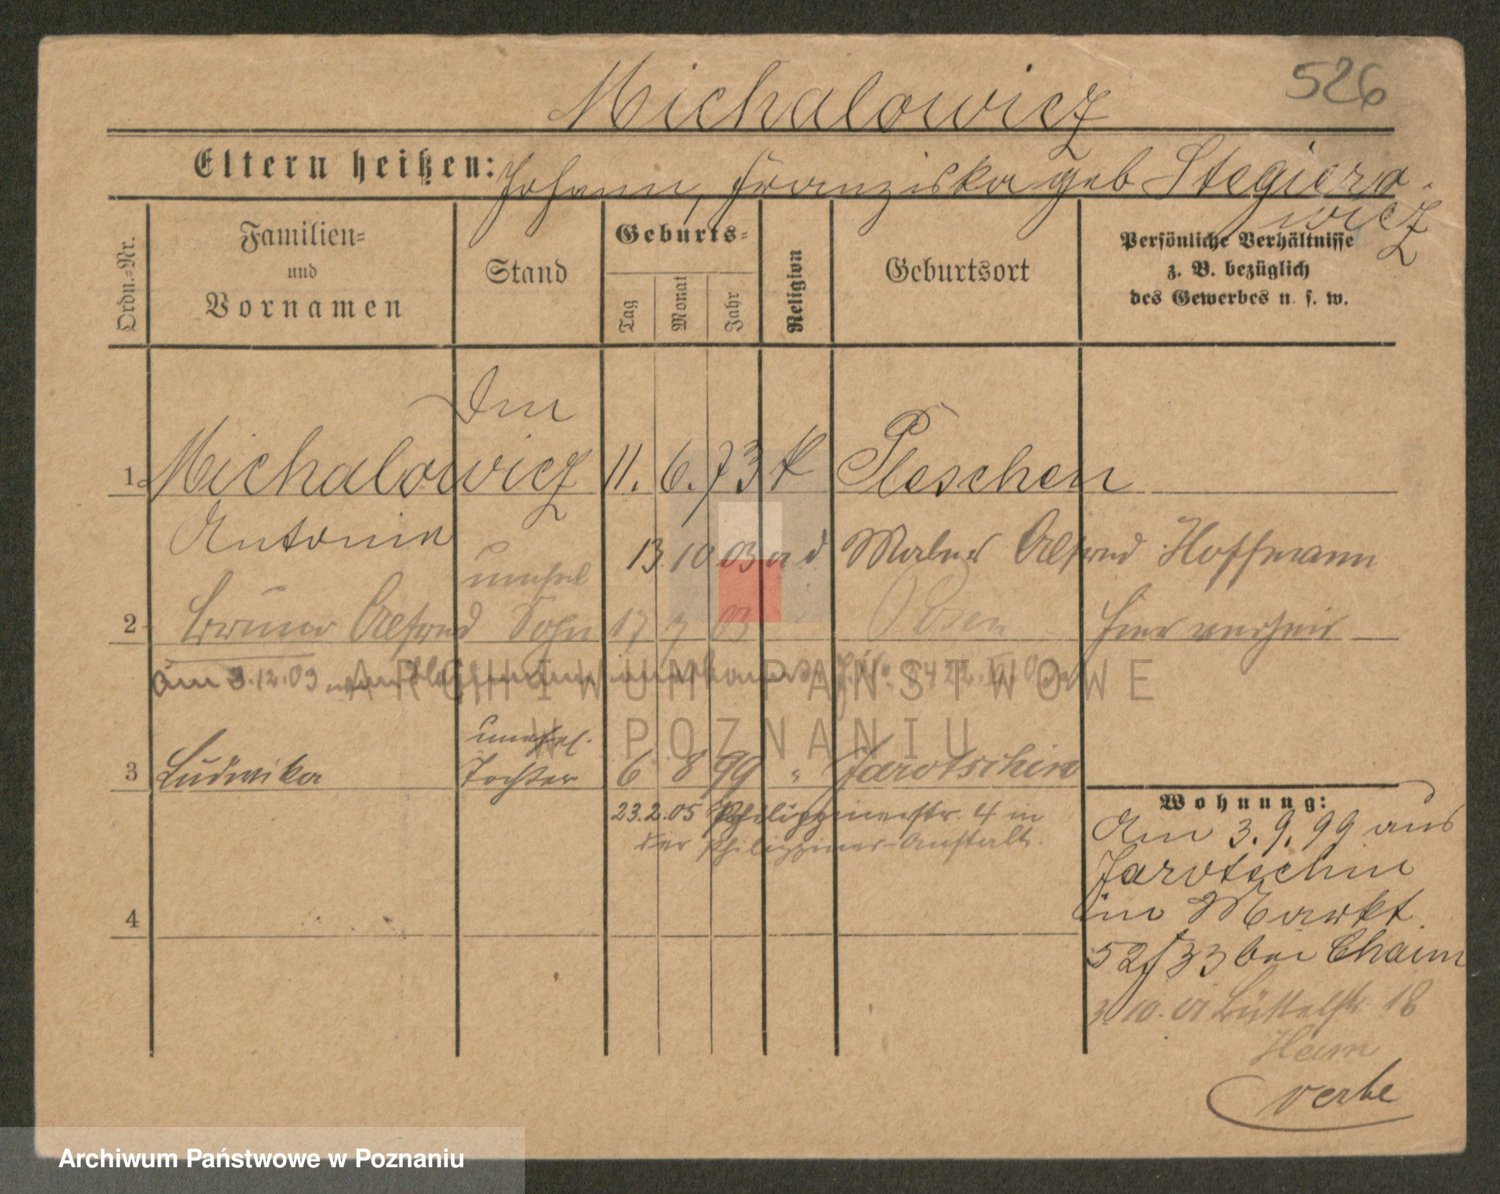 526
Michalowicz
Eltern heißen: Johann, Franziska geb Stegiero-
wicz
Ordn.-Nr.
Familien-
und
Vornamen
Stand
Geburts-
Tag
Monat
Jahr
Religion
Geburtsort
Persönliche Verhältnisse
z. B. bezüglich
des Gewerbes u. s. w.
1. Michalowicz 11. 6. 73 k Pleschen
Antonia
13 10 03 ad Maler Alfred Hoffmann
unehel
2 Bruno Alfred Sohn 17 7 03 Posen hier
am 3.12.03
unehel.
3 Ludwika Tochter 6 8 99 " Jarotschin
23.2.05 Philippinenstr. 4 in
der Philippinen-Anstalt.
Wohnung:
Am 3.9.99 aus
Jarotschin
im Markt
52/33 bei Chaim
3/10.01 Büttelstr 18
Heim
4
verte
ARCHIWUM PAŃSTWOWE
W POZNANIU
Archiwum Państwowe w Poznaniu